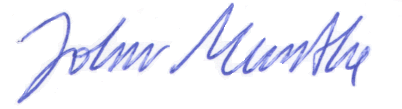 John Munthe